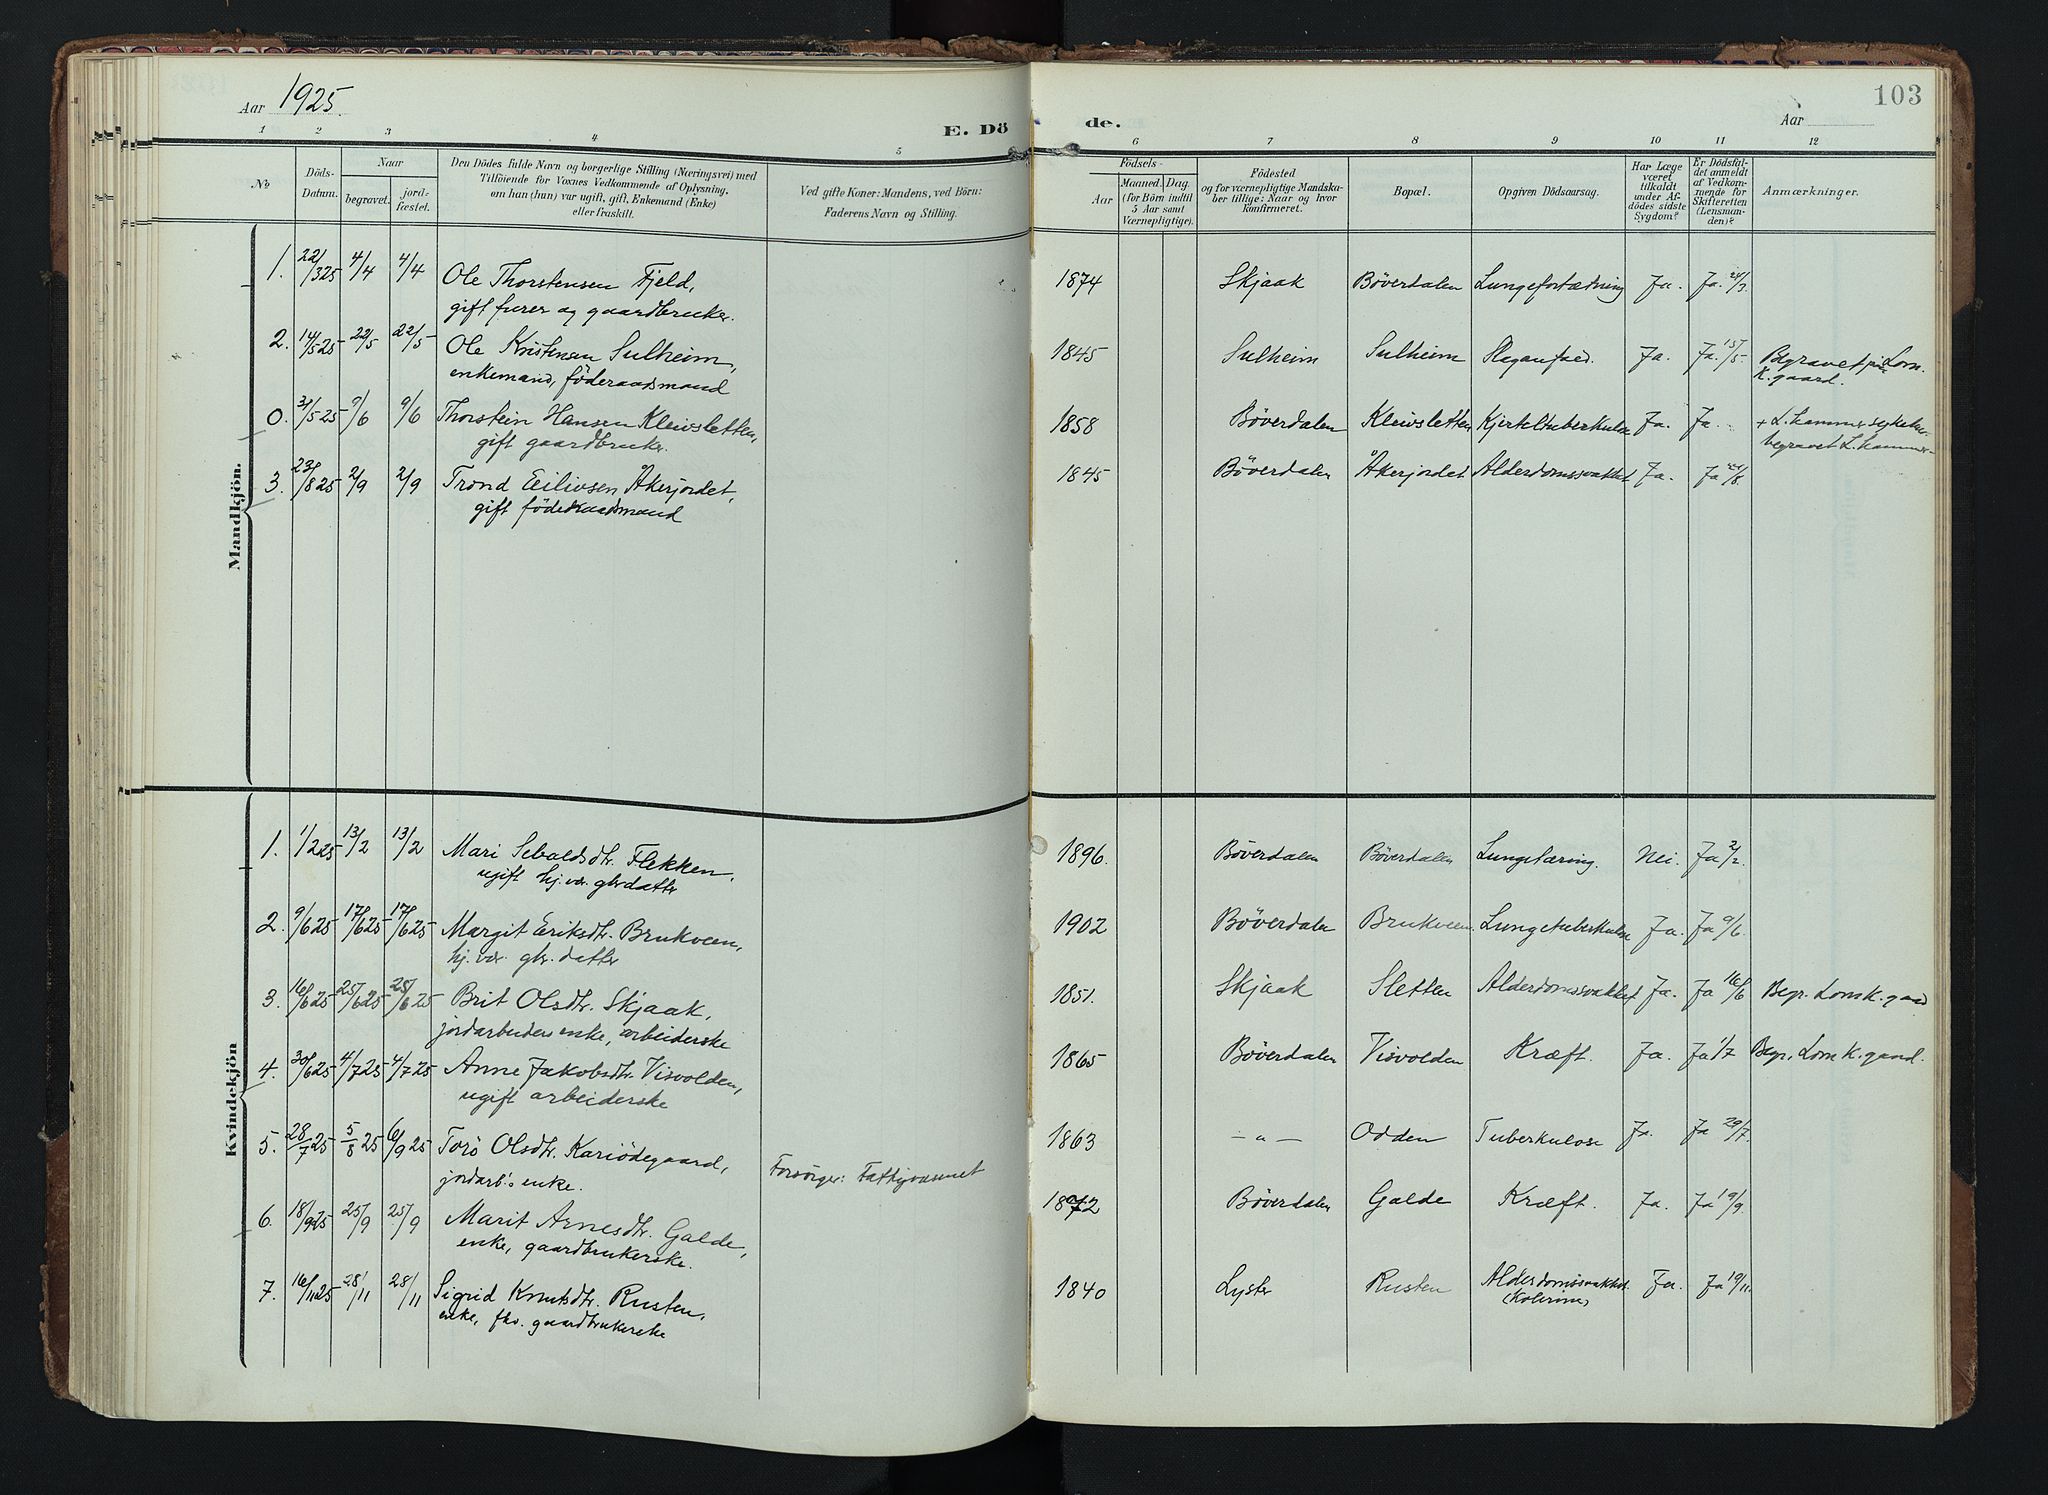 Aar 1925.
E. Dö
de.
Aar
103
1 2 3 4 5 6 7 8 9 10 11 12
No
Döds-
Datum.
Naar
begravet.
jord-
fæstet.
Den Dödes fulde Navn og borgerlige Stilling (Næringsvei) med
Tilföiende for Voxnes Vedkommende af Oplysning,
om han (hun) var ugift, gift, Enkemand (Enke)
eller fraskilt.
Ved gifte Koner: Mandens, ved Börn:
Faderens Navn og Stilling.
Födsels-
Aar
Maaned. Dag.
(for Börn indtil
5 Aar samt
Værnepligtige).
Födested
og for værnepligtige Mandska-
ber tillige: Naar og hvor
konfirmeret.
Bopæl.
Opgiven Dödsaarsag.
Har Læge
været
tilkaldt
under Af-
dödes sidste
Sygdom?
Er Dödsfal-
det anmeldt
af Vedkom-
mende for
Skifteretten
(Lensman-
den)?
Anmærkninger.
Mandkjön.
1. 22/3 25 4/4 4/4 Ole Thorstensen Fjeld, 1874 Skjaak Böverdalen Lungefortætning Ja. Ja. 24/3.
gift furer og gaardbruker.
2. 14/5 25 22/5 22/5 Ole Kristensen Sulheim, 1845 Sulheim Sulheim Slaganfald. Ja. Ja. 15/5 Begravet paa Lom
enkemand, föderaadsmand K. gaard.
0. 31/5 25 9/6 9/6 Thorstein Hansen Kleivsletten, 1858 Böverdalen Kleivsletten Kjerteltuberkulose Ja. Ja. + L.hammer sykehus
gift gaardbruker. begravet L.hammer
3. 23/8 25 2/9 2/9 Trond Eilivsen Åkerjordet, 1845 Böverdalen Åkerjordet Alderdomssvakhet Ja. Ja 24/8.
gift föderaadsmand
Kvindekjön
1. 1/2 25 13/2 13/2 Mari Sebaldsdtr. Flekken, 1896. Böverdalen Böverdalen Lungetæring. Nei. Ja 2/2.
ugift hj. vær. gbr datter
2. 9/6 25 17/6 25 17/6 25 Margit Eriksdtr. Brukveen, 1902 Böverdalen Brukveen Lungetuberkulose Ja. Ja 9/6.
hj. vær. gbr. datter
3. 16/6 25 25/6 25 25/6 25 Brit Olsdtr. Skjaak, 1851. Skjaak Sletten Alderdomssvakhet Ja. Ja 16/6 Begr. Lom K. gaard
jordarbeiders enke, arbeiderske
4. 30/6 25 4/7 25 4/7 25 Anne Jakobsdtr. Visvolden, 1865 Böverdalen Visvolden Kræft. Ja. Ja 1/7 Begr. Lom K. gaard.
ugift arbeiderske
5. 28/7 25 5/8 25 6/9 25 Torö Olsdtr. Kariödegaard, Forsörger: Fattigvæsenet 1863 — " — Odden Tuberkulose Ja. Ja 29/7.
jordarb:s enke.
6. 18/9 25 25/9 25/9 Marit Arnesdtr. Galde, Böverdalen Galde Kræft. Ja. Ja 19/9.
enke, gaardbrukerske.
7. 16/11 25 28/11 28/11 Sigrid Knutsdtr. Rusten, 1840 Lyster Rusten Alderdomssvakhet. Ja. Ja 19/11.
enke, fhv. gaardbrukerske